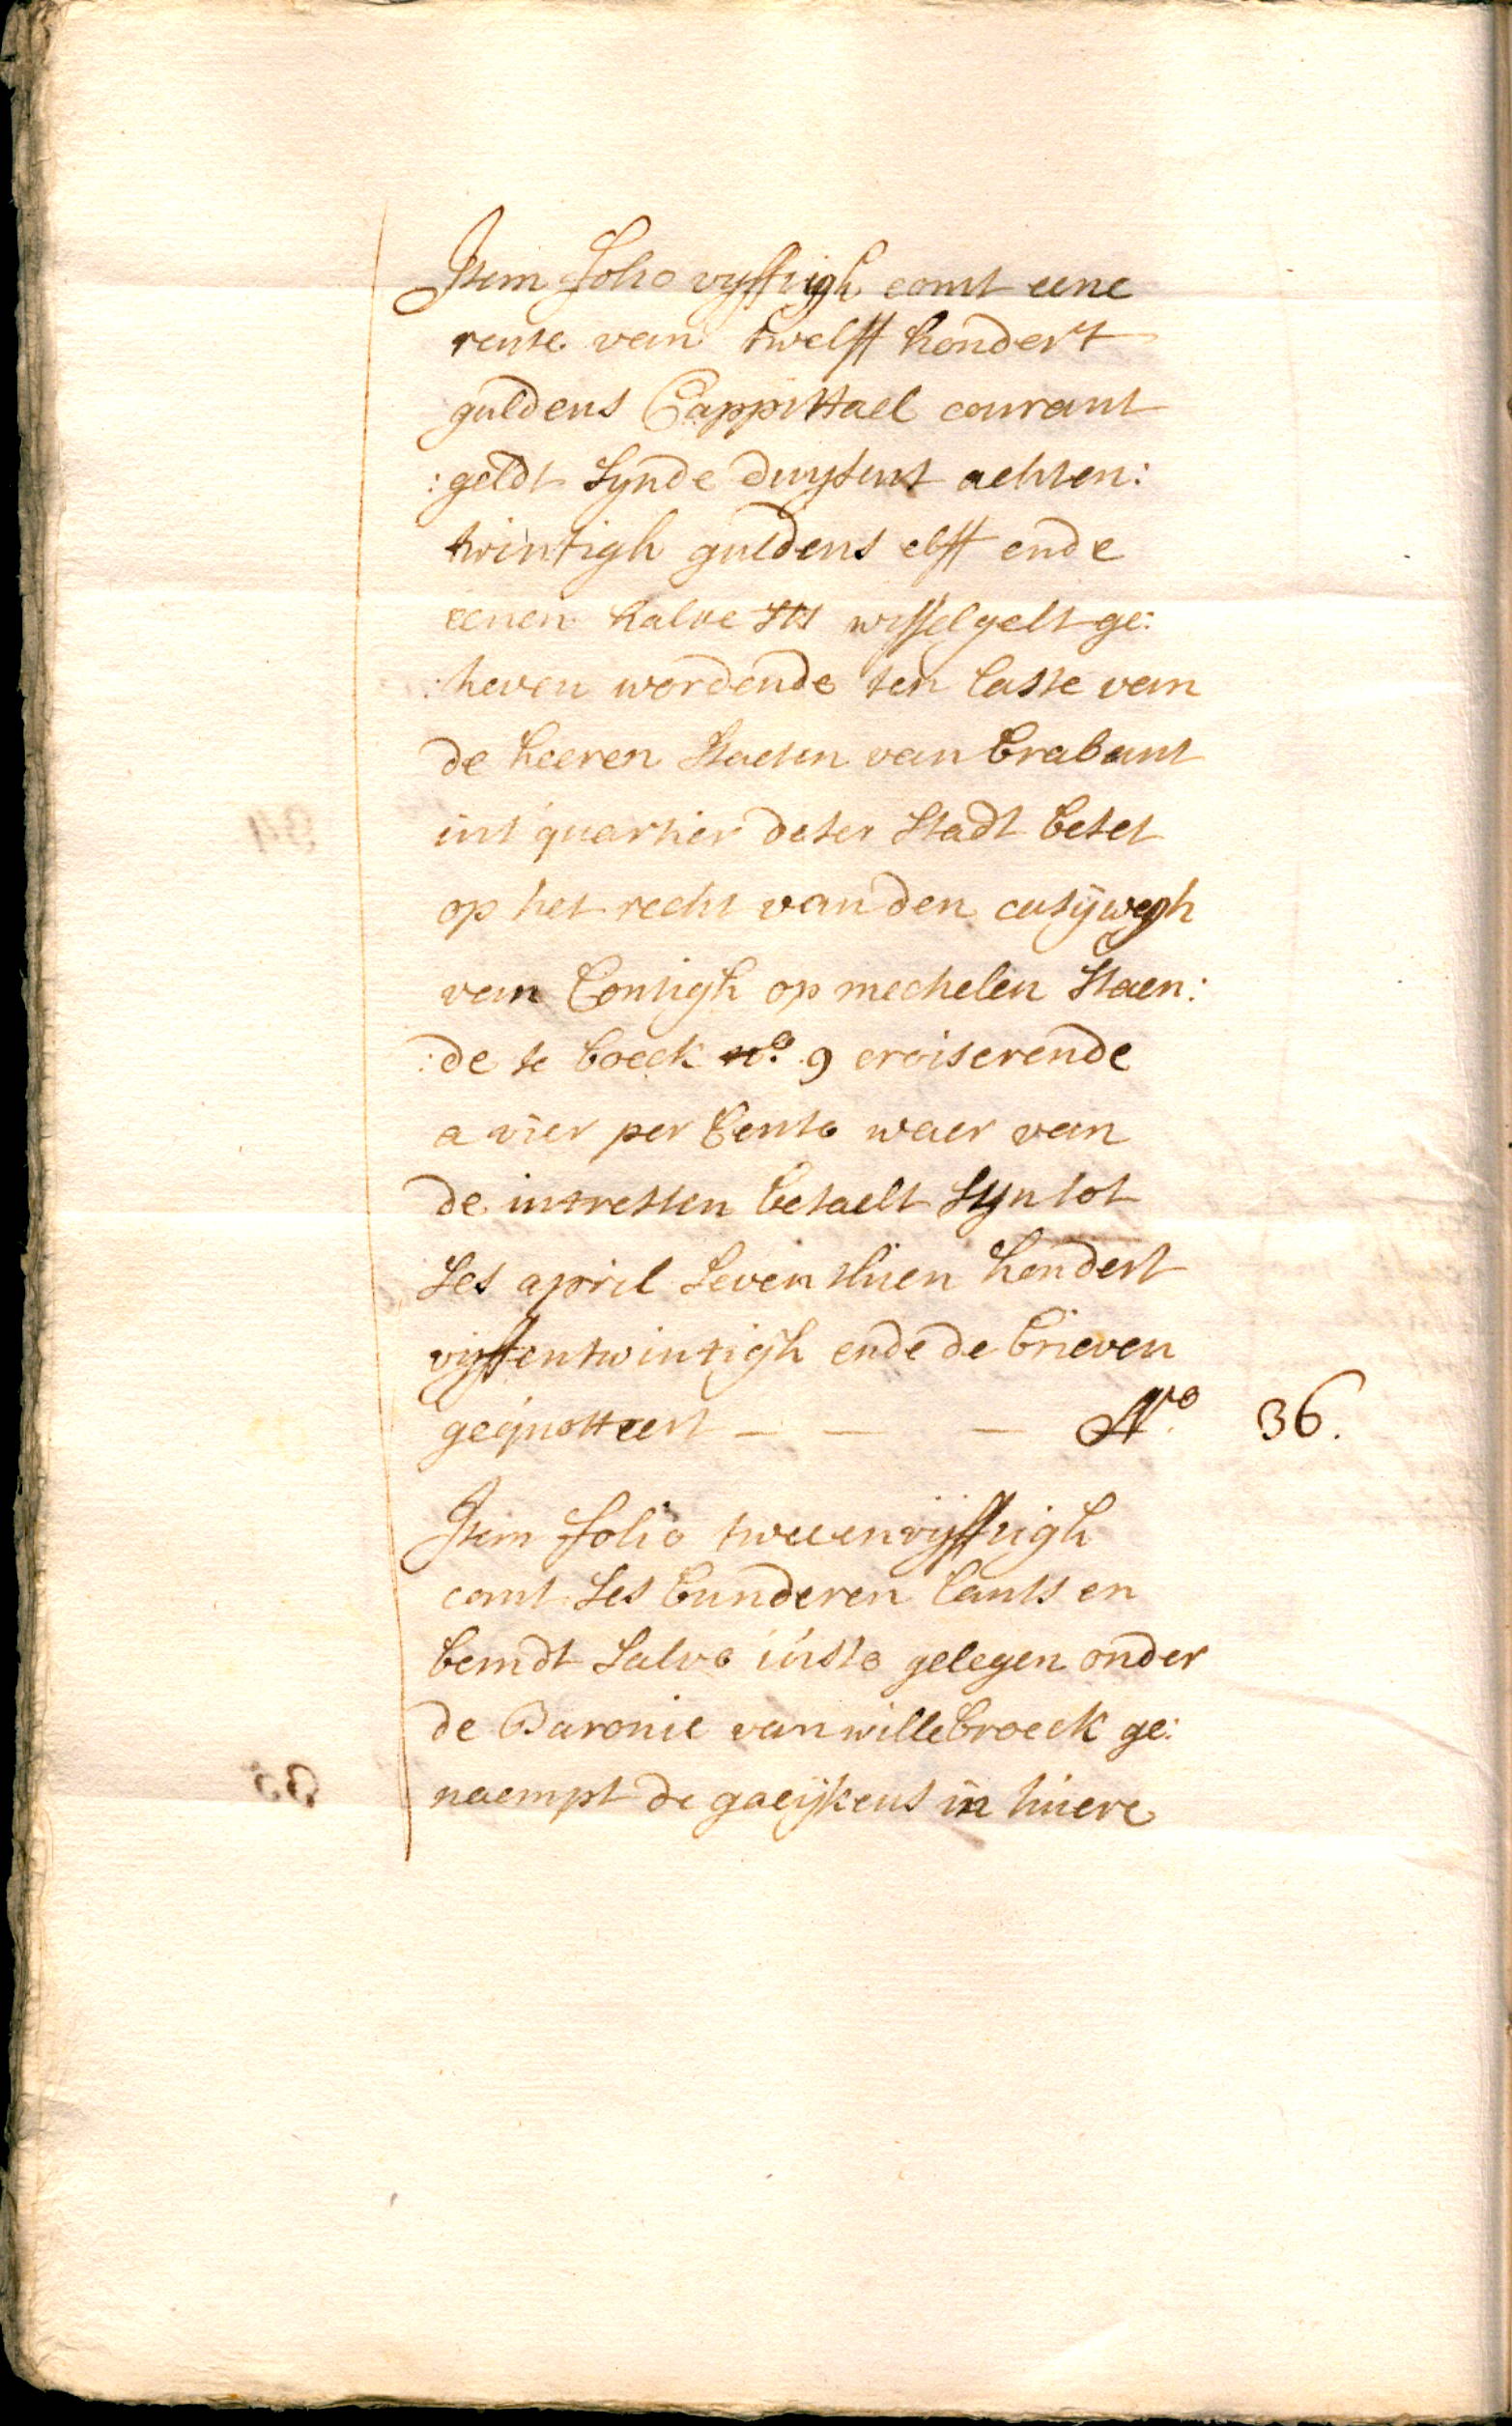 Item folio vyfftigh comt eene
rente van twelff hondert
guldens Cappittael courant
:geldt synde duysent achten:
twintigh guldens elff ende
eenen halve sts wisselgelt ge:
:heven wordende ten laste van
de heeren Staeten van brabant
int quartier deser stadt beset
op het recht van den casijwegh
van Contigh op mechelen staen:
:de te boeck no. 9 croiserende
a vier per Cento waer van
de intresten betaelt syn tot
ses april seventhien hondert
vyffentwintigh ende de brieven
gequotteert — — — No 36.
Item folio tweeenvyfftigh
comt ses bunderen lants en
bemdt salvo iusto gelegen onder
de Baronie van willebroeck ge:
naempt de gaeijkens in huere